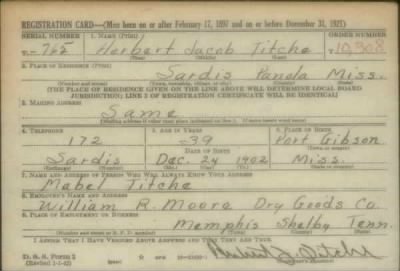 REGISTRATION CARD—(Men born on or after February 17, 1897 and on or before December 31, 1921)
SERIAL NUMBER 1. NAME (Print) ORDER NUMBER
U-762 Herbert Jacob Titche V10,308
(First) (Middle) (Last)
2. PLACE OF RESIDENCE (Print)
Sardis Panola Miss.
(Number and street) (Town, township, village, or city) (County) (State)
[THE PLACE OF RESIDENCE GIVEN ON THE LINE ABOVE WILL DETERMINE LOCAL BOARD
JURISDICTION; LINE 2 OF REGISTRATION CERTIFICATE WILL BE IDENTICAL]
3. MAILING ADDRESS
Same
[Mailing address if other than place indicated on line 2. If same insert word same]
4. TELEPHONE 5. AGE IN YEARS 6. PLACE OF BIRTH
172 39 Port Gibson
DATE OF BIRTH (Town or county)
Sardis Dec. 24 1902 Miss.
(Exchange) (Number) (Mo.) (Day) (Yr.) (State or country)
7. NAME AND ADDRESS OF PERSON WHO WILL ALWAYS KNOW YOUR ADDRESS
Mabel Titche
8. EMPLOYER'S NAME AND ADDRESS
William R. Moore Dry Goods Co.
9. PLACE OF EMPLOYMENT OR BUSINESS
Memphis Shelby Tenn.
(Number and street or R. F. D. number) (Town) (County) (State)
I AFFIRM THAT I HAVE VERIFIED ABOVE ANSWERS AND THAT THEY ARE TRUE.
D. S. S. Form 1
(Revised 1-1-42) (over)